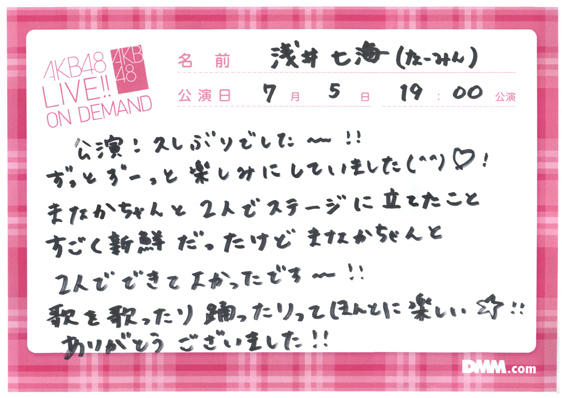 AKB48
LIVE!!
ON DEMAND
AKB
48
名前 浅井七海(なーみん)
公演日 7月5日 19:00公演
公演!久しぶりでした〜!!
ずっとずーっと楽しみにしていました(^^)♡!
まなかちゃんと2人でステージに立てたこと
すごく新鮮だったけどまなかちゃんと
2人でできてよかったです〜!!
歌を歌ったり踊ったりってほんとに楽しい☆!!
ありがとうございました!!
DMM.com